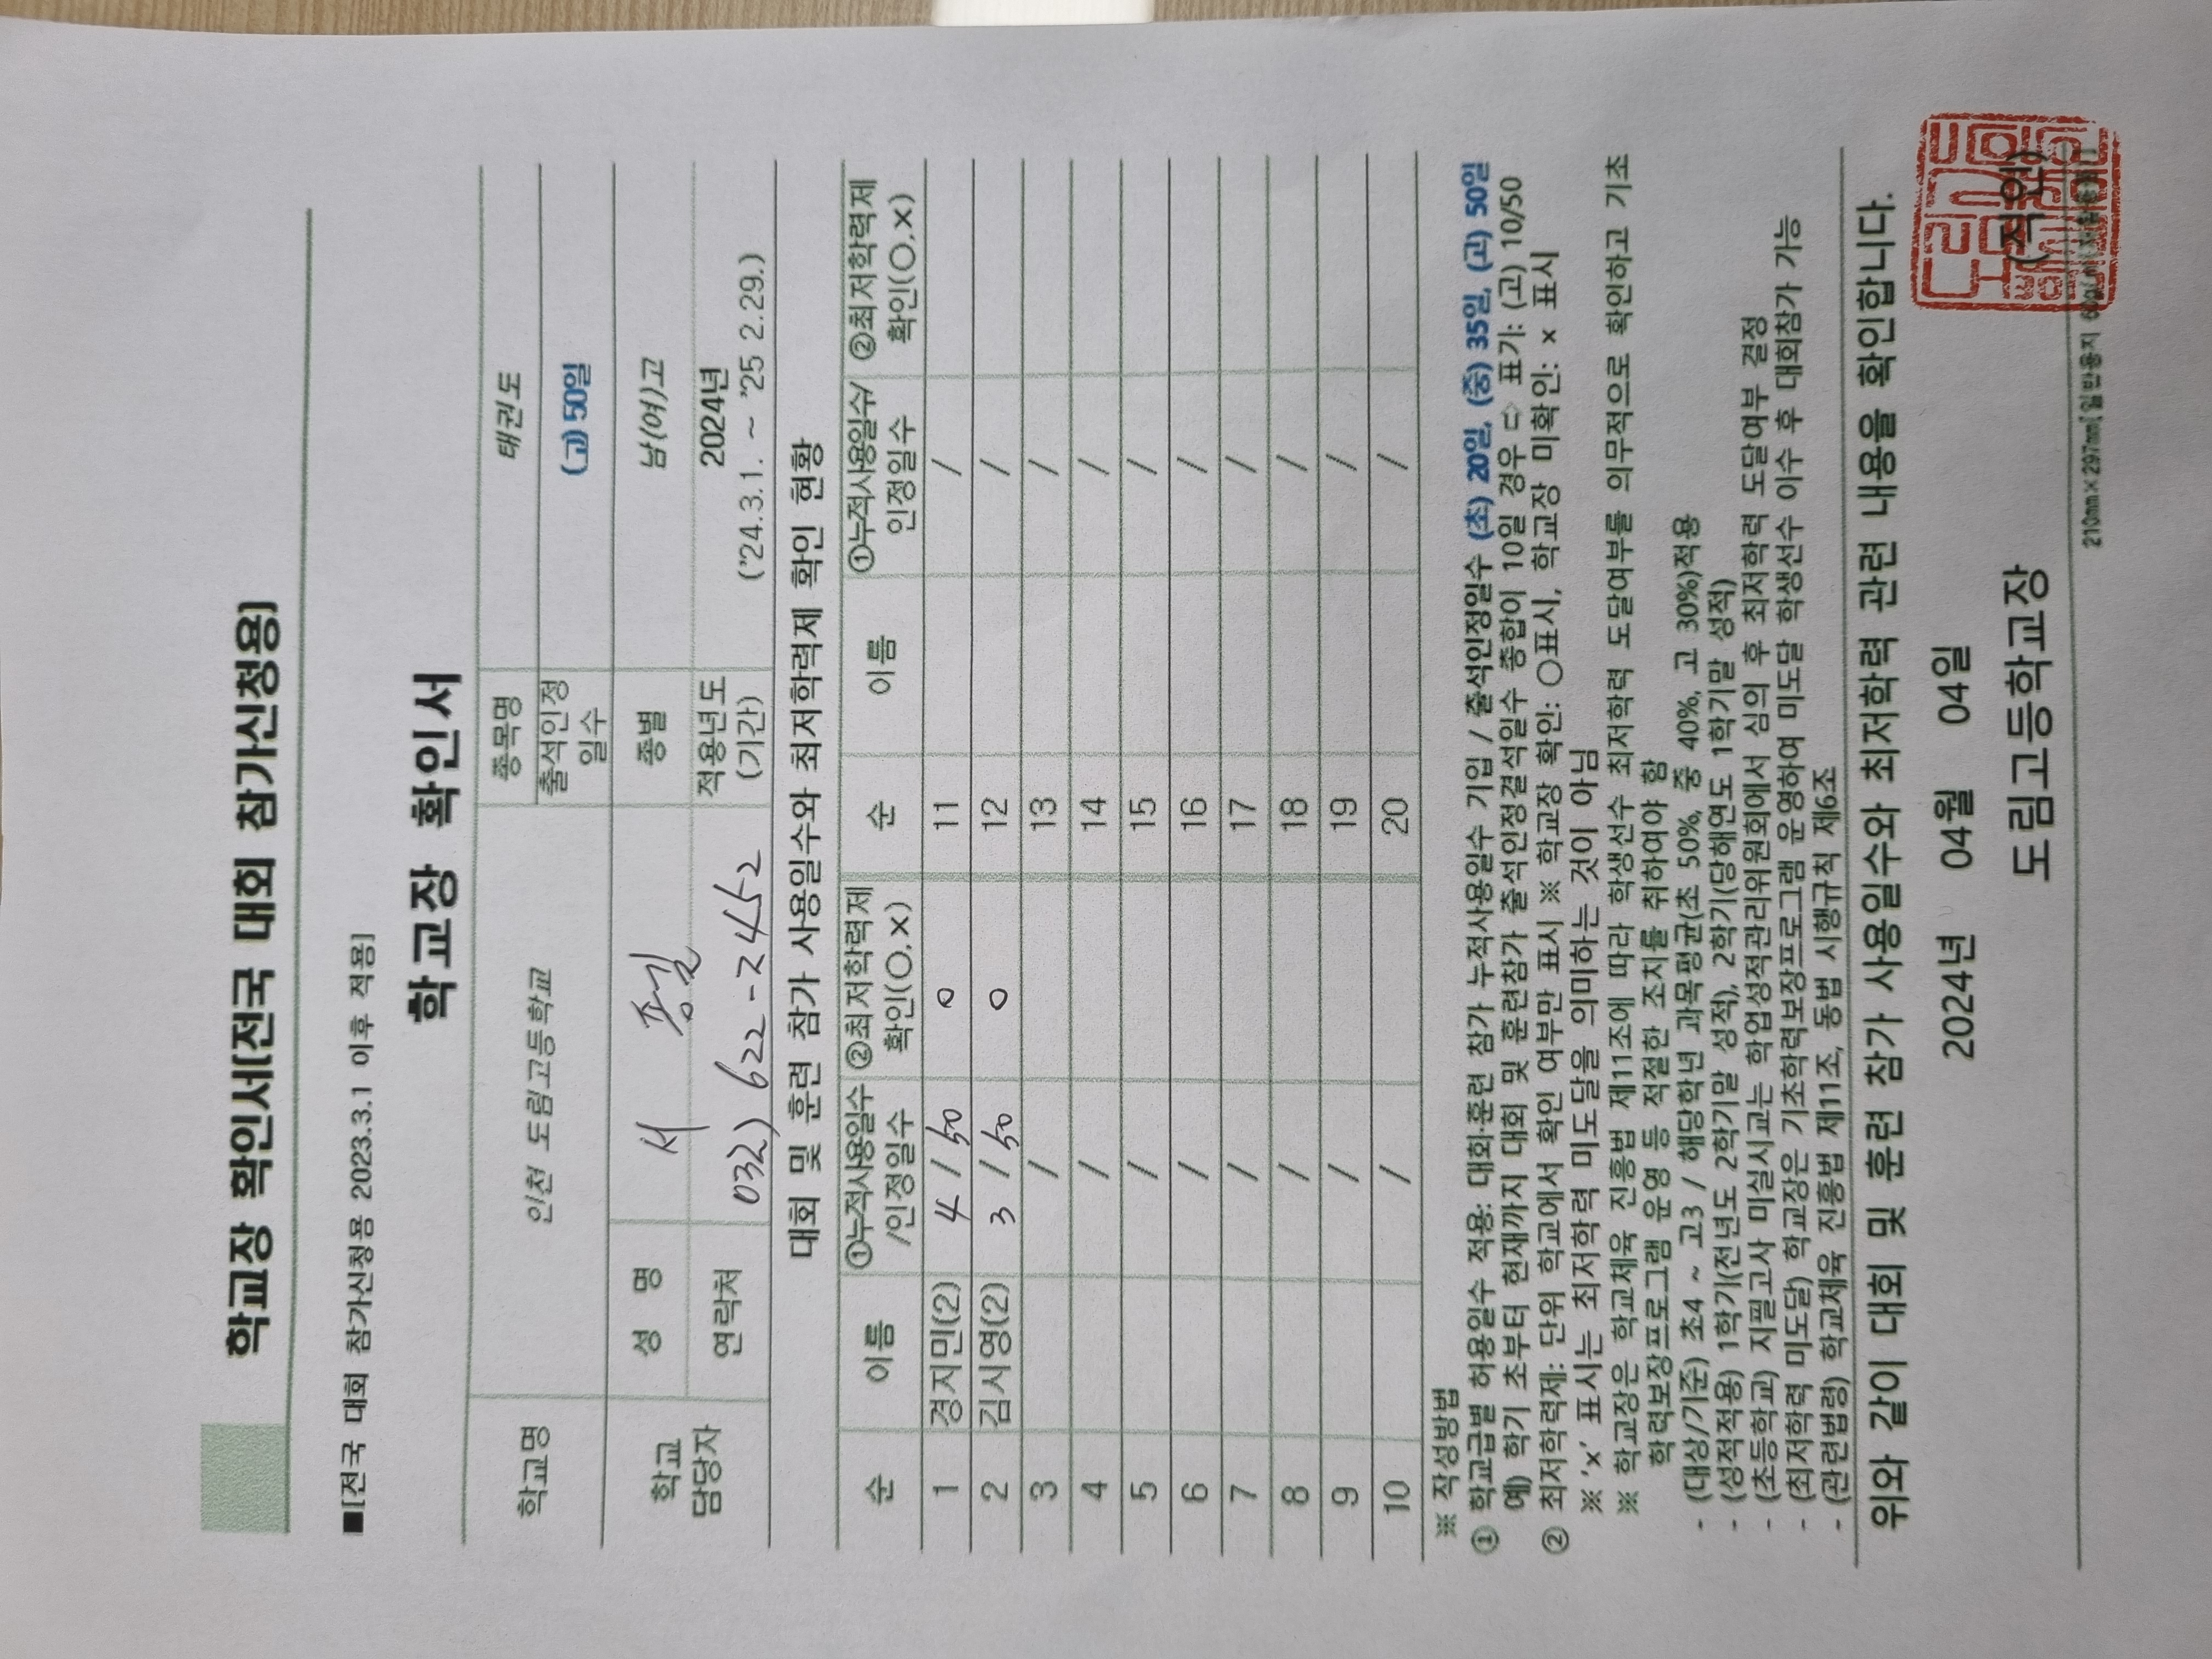 학교장 확인서[전국 대회 참가신청용]
■[전국 대회 참가신청용 2023.3.1 이후 적용]
학교장 확인서
학교명 인천 도림고등학교 종목명 태권도
출석인정일수 (고) 50일
학교 담당자 성 명 서 종별 남(여)고
연락처 032) 622-2452 적용년도(기간) 2024년 ('24.3.1. ~ '25 2.29.)
대회 및 훈련 참가 사용일수와 최저학력제 확인 현황
순 이름 ①누적사용일수/인정일수 ②최저학력제 확인(○,×) 순 이름 ①누적사용일수/인정일수 ②최저학력제 확인(○,×)
1 경지민(2) 4 / 50 ○ 11 /
2 김시영(2) 3 / 50 ○ 12 /
3 / 13 /
4 / 14 /
5 / 15 /
6 / 16 /
7 / 17 /
8 / 18 /
9 / 19 /
10 / 20 /
※ 작성방법
① 학교급별 허용일수 적용: 대회·훈련 참가 누적사용일수 기입 / 출석인정일수 (초) 20일, (중) 35일, (고) 50일
예) 학기 초부터 현재까지 대회 및 훈련참가 출석인정결석일수 총합이 10일 경우 ⇨ 표기: (고) 10/50
② 최저학력제: 단위 학교에서 확인 여부만 표시 ※ 학교장 확인: ○표시, 학교장 미확인: × 표시
※ '×' 표시는 최저학력 미도달을 의미하는 것이 아님
※ 학교장은 학교체육 진흥법 제11조에 따라 학생선수 최저학력 도달여부를 의무적으로 확인하고 기초
학력보장프로그램 운영 등 적절한 조치를 취하여야 함
- (대상/기준) 초4 ~ 고3 / 해당학년 과목평균(초 50%, 중 40%, 고 30%)적용
- (성적적용) 1학기(전년도 2학기말 성적), 2학기(당해연도 1학기말 성적)
- (초등학교) 지필고사 미실시교는 학업성적관리위원회에서 심의 후 최저학력 도달여부 결정
- (최저학력 미도달) 학교장은 기초학력보장프로그램 운영하여 미도달 학생선수 이수 후 대회참가 가능
- (관련법령) 학교체육 진흥법 제11조, 동법 시행규칙 제6조
위와 같이 대회 및 훈련 참가 사용일수와 최저학력 관련 내용을 확인합니다.
2024년 04월 04일
도림고등학교장 (직인)
210mm×297mm[일반용지 60g/㎡